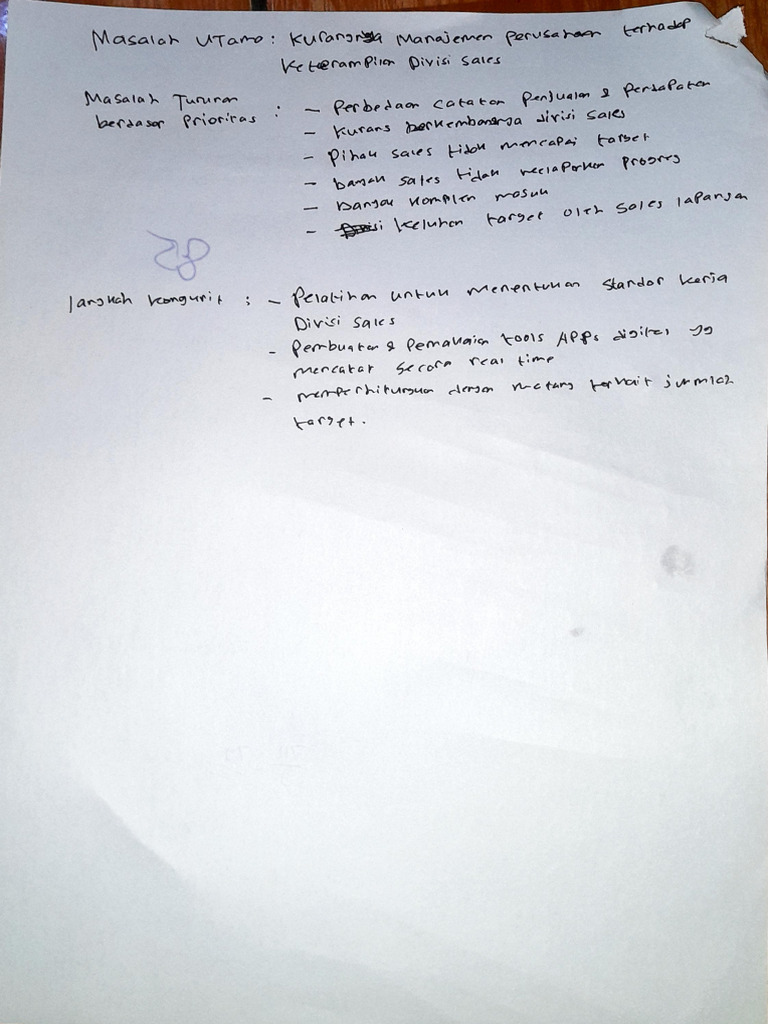 Masalah Utama : Kurangnya Manajemen Perusahaan terhadap
Keterampilan Divisi Sales
Masalah Turunan
berdasar Prioritas :
- Perbedaan catatan Penjualan & Pendapatan
- Kurang berkembangnya divisi sales
- Pihak sales tidak mencapai target
- banyak sales tidak melaporkan progres
- Banyak komplen masuk
- Keluhan target oleh sales lapangan
langkah kongurit :
- Pelatihan untuk menentukan standar kerja
Divisi Sales
- Pembuatan & Pemakaian tools APPs digital yg
mencatat secara real time
- memperhitungkan dengan matang terkait jumlah
target.